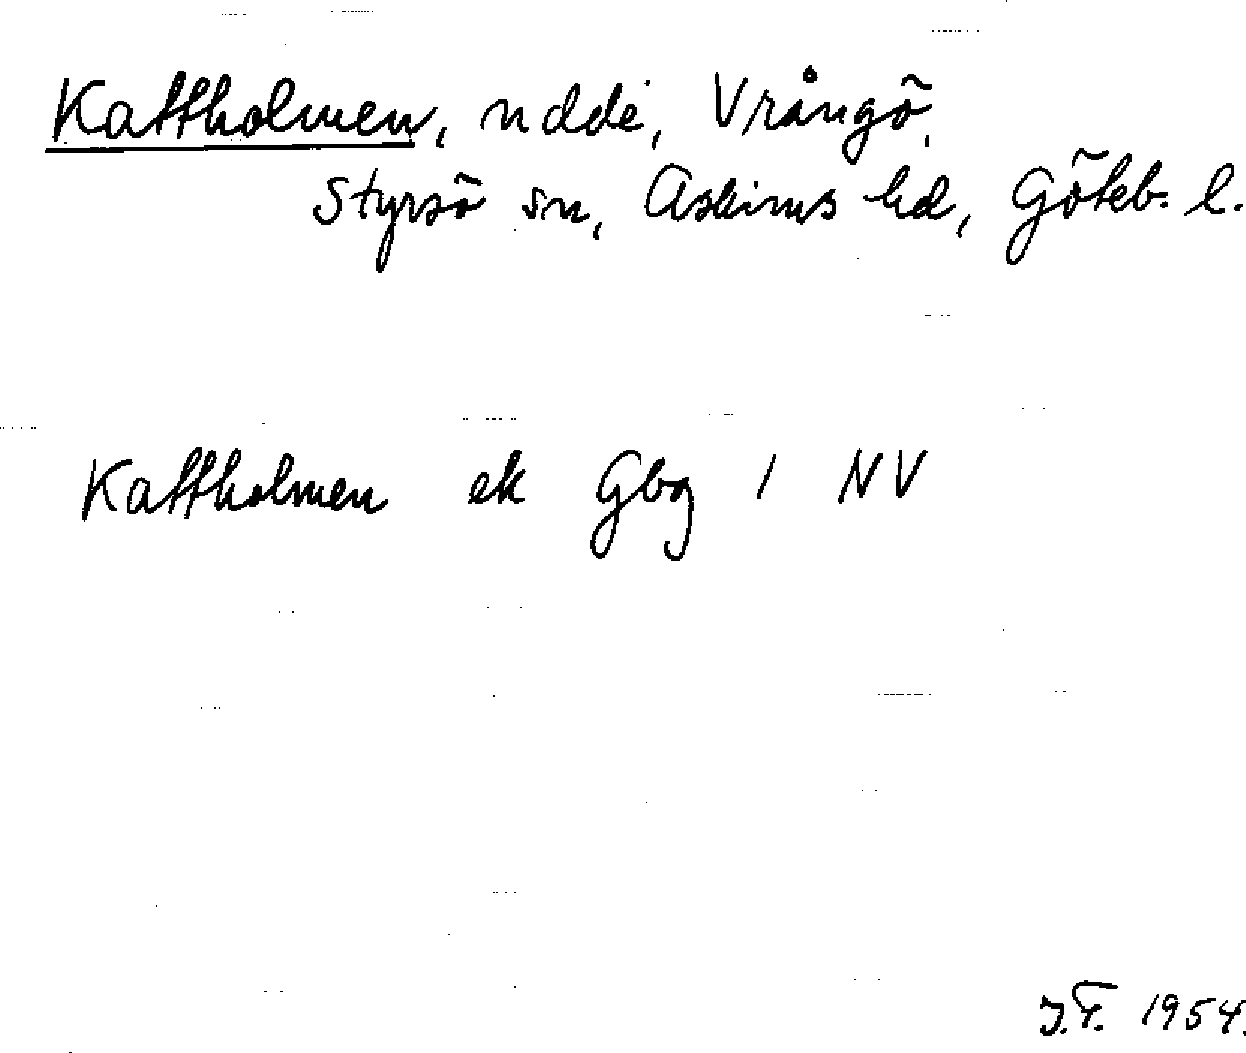 Kattholmen, udde, Vrångö,
Styrsö sn, Askims hd, Göteb. l.
Kattholmen ek Gbg 1 NV
J.F. 1954.